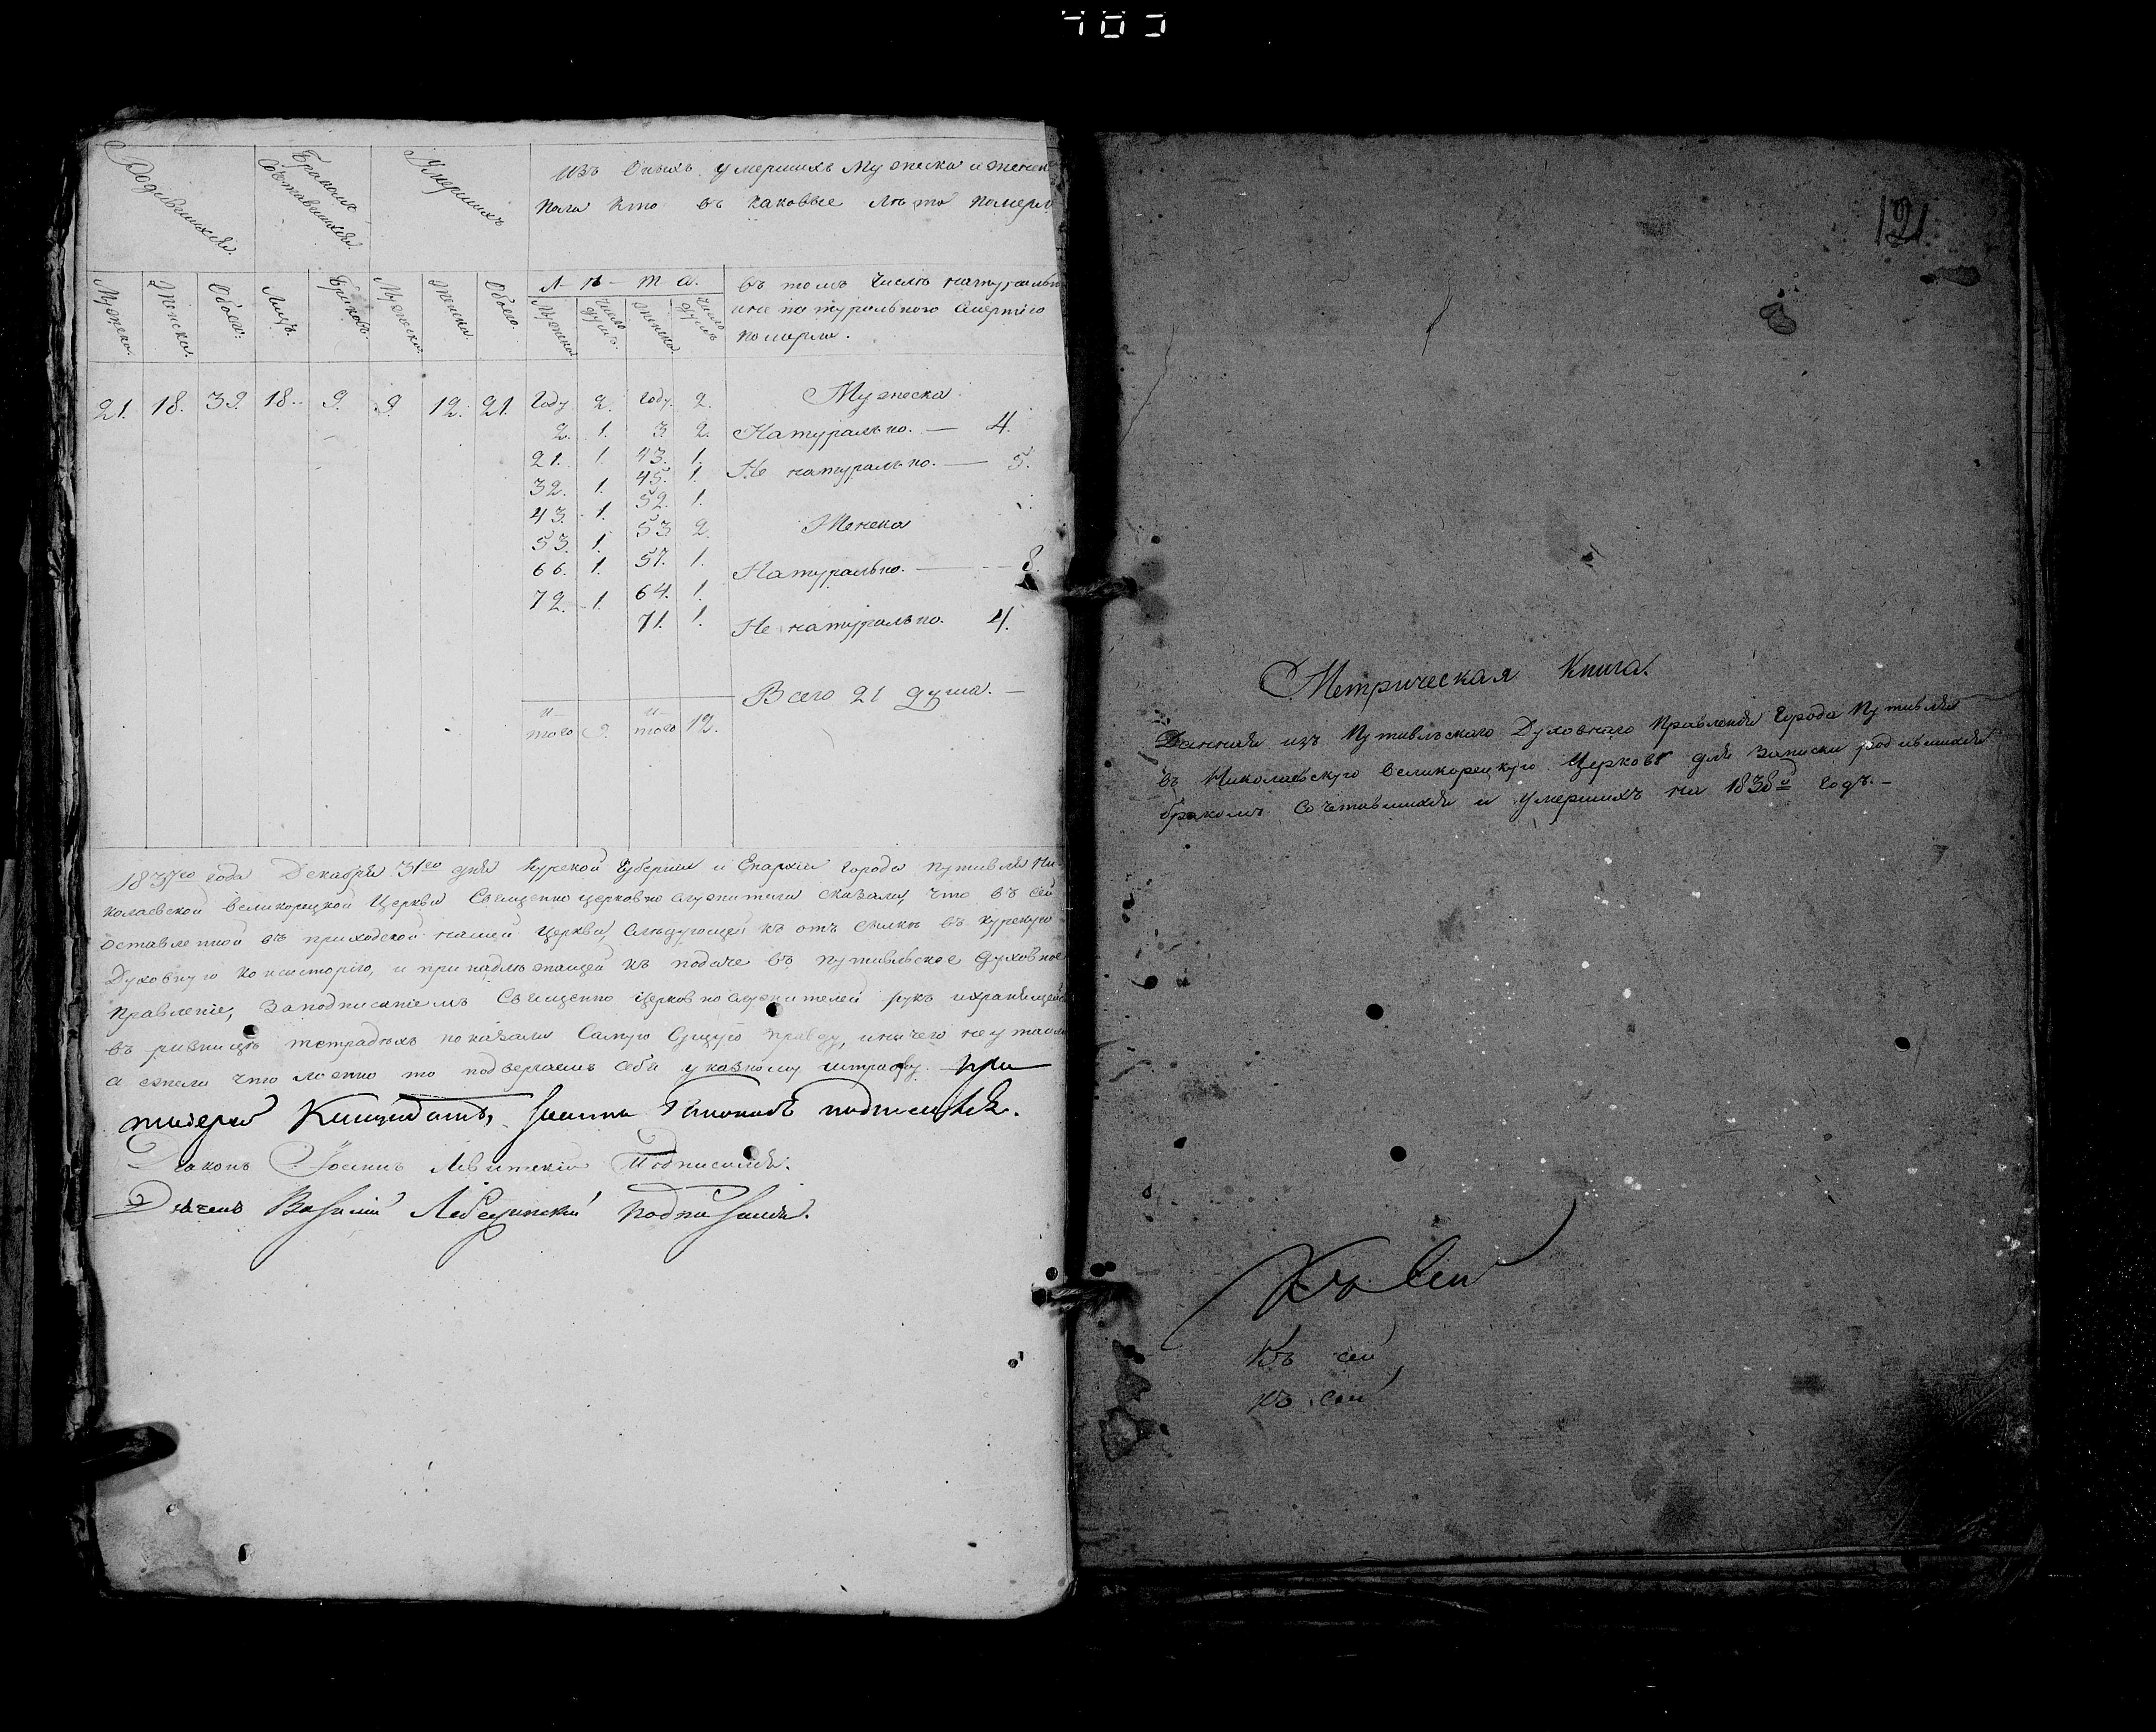 Родившихся.
Бракомъ сочетавшихся.
Умершихъ
Изъ оныхъ умершихъ Мужеска и женск
пола кто въ каковые лѣта померъ
Мужеска. Женска. Обоего. Лицъ. Браковъ. Мужеска. Женска. Обоего.
Л - ѣ - т а.
Мужеска число душъ. женска число душъ
въ томъ числѣ натуральн
и не натуральною смертію
померли.
21. 18. 39. 18. 9. 9. 12. 21. Году 2. Году. 2. Мужеска
2. 1. 3 2. Натурально. — 4.
21. 1. 43. 1. Не натурально. — 5.
32. 1. 45. 1.
43. 1. 52. 1.
53. 1. 53 2. Женска
66. 1. 57. 1. Натурально. — 8.
72. 1. 64. 1.
71. 1. Не натурально. 4.
Всего 21 душа. —
и-
того 9. и-
того 12.
1837го года Декабря 31го дня Курской Губерніи и Епархіи Города Путивля Ни-
колаевской великорецкой Церкви Священно церковно служители сказали, что въ сей
оставленной въ приходской нашей Церкви, слѣдующей къ отсылкѣ въ Курскую
Духовную консисторію, и принадлежащей къ подаче въ Путивльское Духовное
Правленіе, за подписаніемъ Священно церковно служителей рукъ и хранящейся
въ ризницѣ тетрадяхъ показали самую сущую правду, и ничего не утаили
а ежели что ложно то подвергаемъ себя указному штрафу. —
Діаконъ Іоаннъ Левитскій Подписался.
Дьячекъ Василій Лебединскій подписался.
121
Метрическая Книга.
Данная изъ Путивльскаго Духовнаго Правленія Города Путивля
въ Николаевскую великорецкую Церковь для записки родившихся
бракомъ сочетавшихся и умершихъ на 1838й годъ. —
Къ сей
Къ сей
къ сей